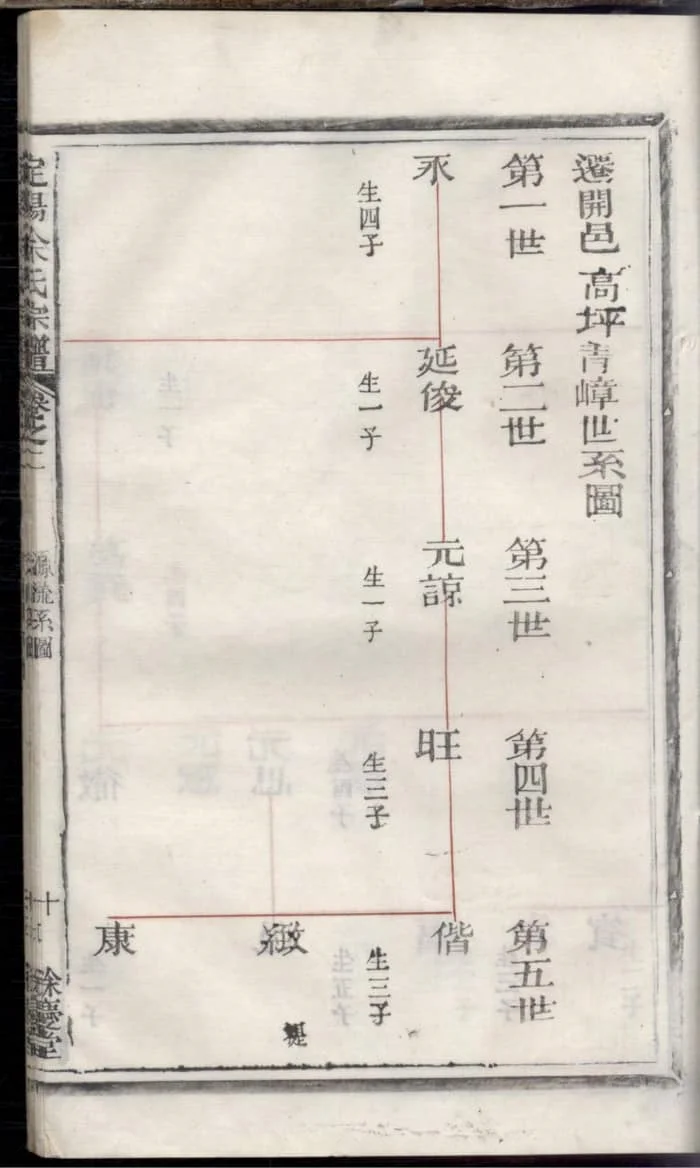 遷開邑高坪青嶂世系圖
第一世
第二世
第三世
第四世
第五世
永
延俊
元諒
旺
偕
生四子
生一子
生一子
生三子
生三子
緻
康
余氏宗譜
卷之二
源流系圖